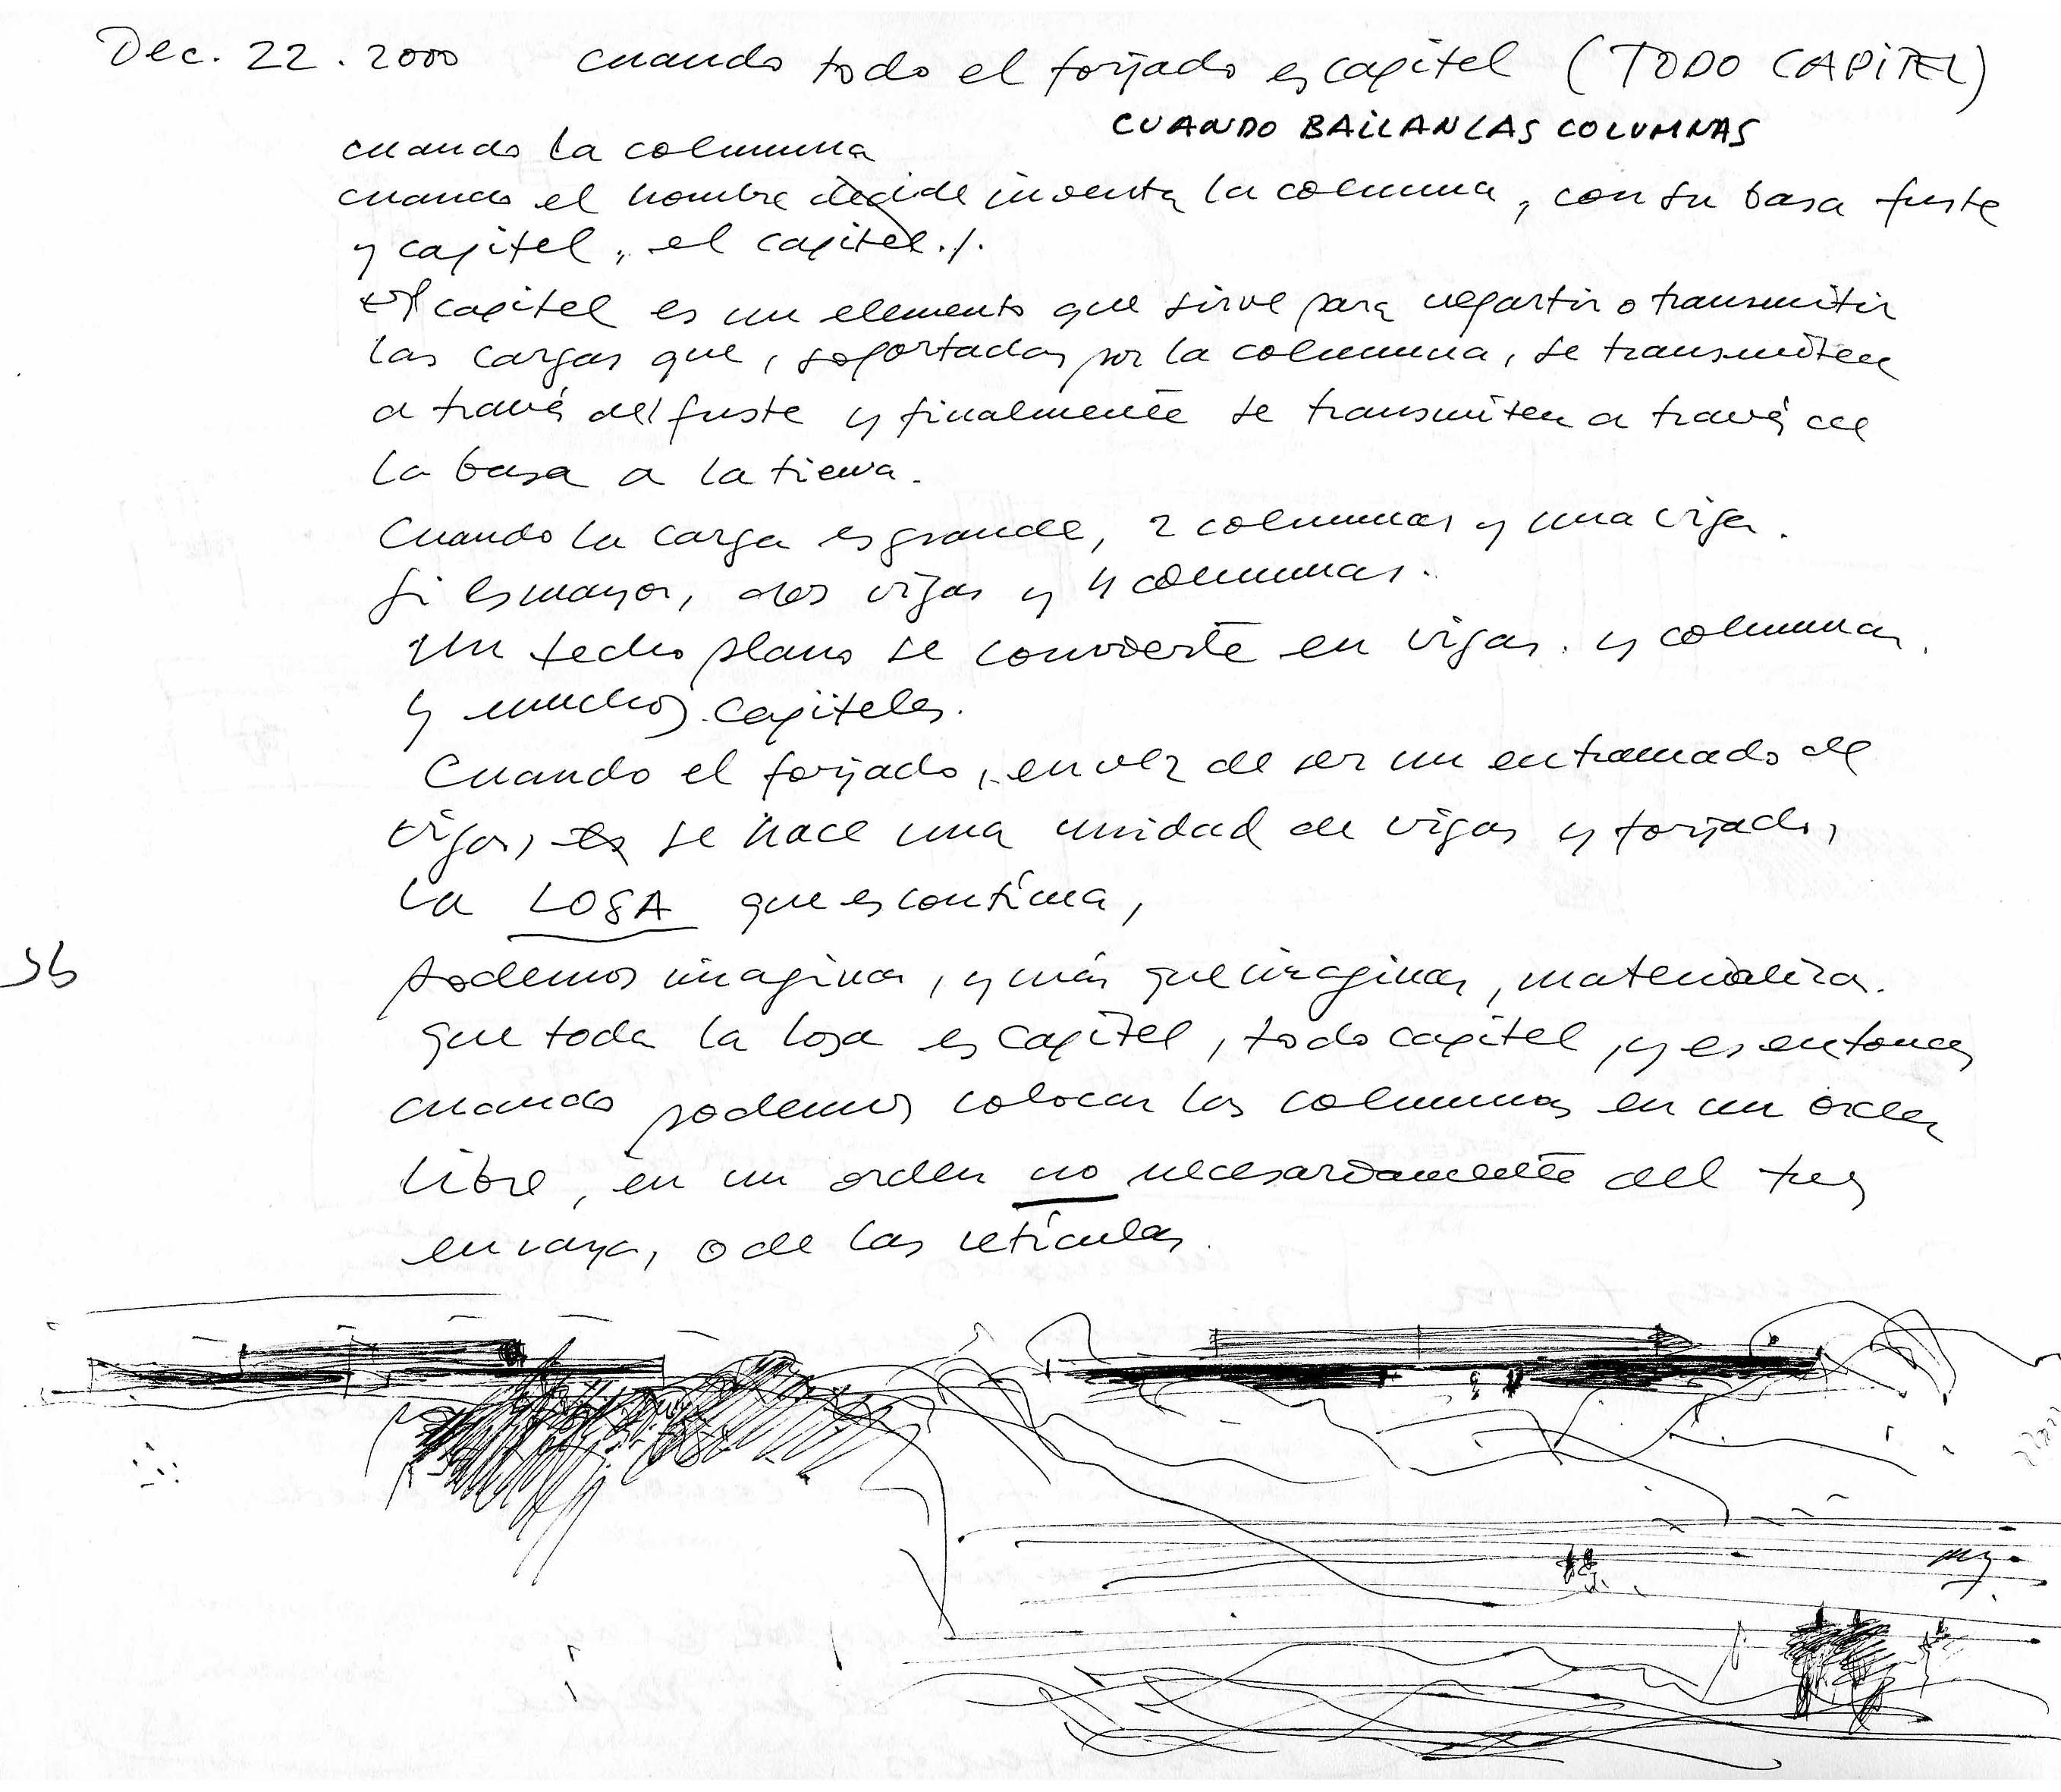 Dec. 22. 2000 cuando todo el forjado es capitel (TODO CAPITEL)
CUANDO BAILAN LAS COLUMNAS
cuando la columna
cuando el hombre decide inventa la columna, con su basa fuste
y capitel, el capitel./.
El capitel es un elemento que sirve para repartir o transmitir
las cargas que, soportadas por la columna, se transmiten
a través del fuste y finalmente se transmiten a través de
la basa a la tierra.
Cuando la carga es grande, 2 columnas y una viga.
Si es mayor, dos vigas y 4 columnas.
Un techo plano se convierte en vigas. y columnas.
y muchos capiteles.
Cuando el forjado, en vez de ser un entramado de
vigas, es se hace una unidad de vigas y forjado,
la LOSA que es contínua,
podemos imaginar, y más que imaginar, materializar.
que toda la losa es capitel, todo capitel, y es entonces
36
cuando podemos colocar las columnas en un orden
libre, en un orden no necesariamente del tres
en raya, o de las retículas.